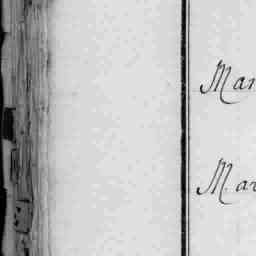 Mar
Mar